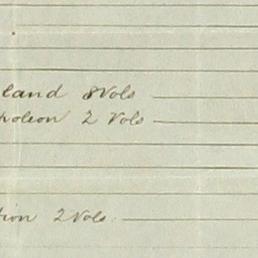 land 8 Vols
poleon 2 Vols
tion 2 Vols.